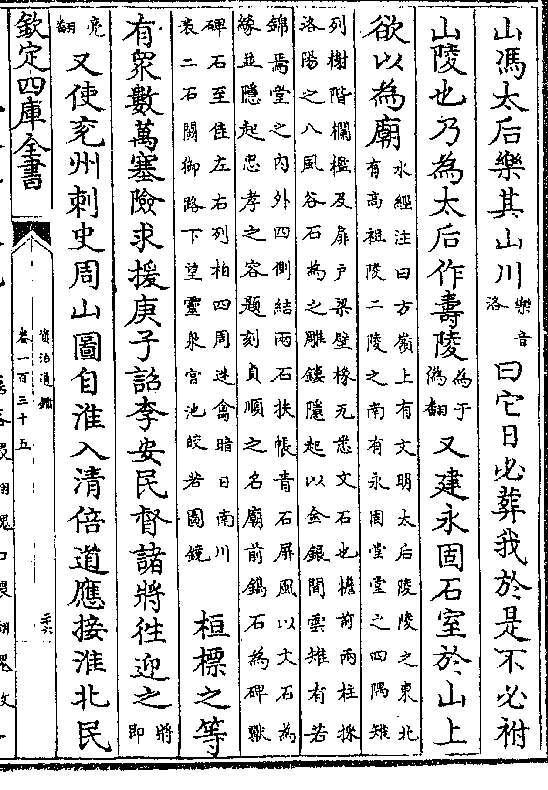 山馮太后樂其山川樂音洛曰它日必葬我於是不必祔
山陵也乃為太后作壽陵為于偽翻又建永固石室於山上
欲以為廟水經注曰方嶺上有文明太后陵陵之東北
有高祖陵二陵之南有永固堂堂之四隅雉
列榭階欄檻及扉戶梁壁椽瓦悉文石也檐前兩柱採
洛陽之八風谷石為之雕鏤隱起以金銀間雲雉有若
錦焉堂之內外四側結兩石扶帳青石屏風以文石為
緣並隱起忠孝之容題刻貞順之名廟前鐫石為碑獸
碑石至佳左右列柏四周迷禽暗日南川
表二石闕御路下望靈泉宮池皎若圓鏡桓標之等
有衆數萬塞險求援庚子詔李安民督諸將往迎之將即
亮翻又使兖州刺史周山圖自淮入清倍道應接淮北民
欽定四庫全書
資治通鑑
卷一百三十五